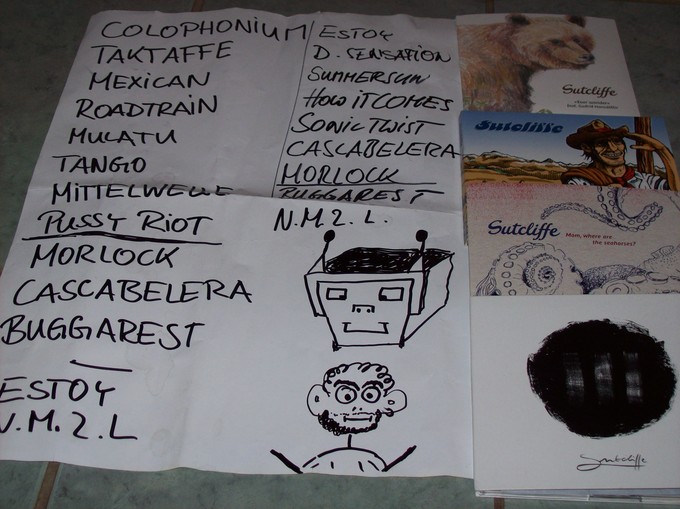 COLOPHONIUM
TAKTAFFE
MEXICAN
ROADTRAIN
MULATU
TANGO
MITTELWELLE
PUSSY RIOT
MORLOCK
CASCABELERA
BUGGAREST
ESTOY
N.M.2.L
ESTOY
D. SENSATION
SUMMERSUN
HOW IT COMES
SONIC TWIST
CASCABELERA
MORLOCK
BUGGAREST
N.M.2.L.
Sutcliffe
Sutcliffe
Sutcliffe
Mom, where are
the seahorses?
Sutcliffe